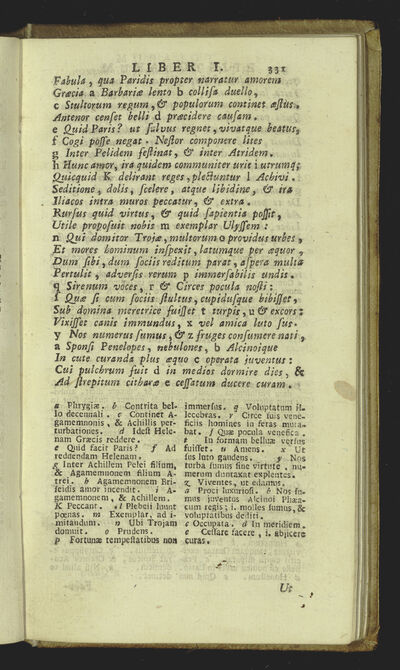 LIBER I. 331
Fabula, qua Paridis propter narratur amorem
Græcia a Barbariæ lento b collisa duello,
c Stultorum regum, & populorum continet æstus.
Antenor censet belli d præcidere causam.
e Quid Paris? ut salvus regnet, vivatque beatus,
f Cogi posse negat. Nestor componere lites
g Inter Pelidem festinat, & inter Atridem.
h Hunc amor, ira quidem communiter urit i utrumq;
Quicquid K delirant reges, plectuntur l Achivi.
Seditione, dolis, scelere, atque libidine, & ira
Iliacos intra muros peccatur, & extra.
Rursus quid virtus, & quid sapientia possit,
Utile proposuit nobis m exemplar Ulyssem:
n Qui domitor Trojæ, multorum o providus urbes,
Et mores hominum inspexit, latumque per æquor,
Dum sibi, dum sociis reditum parat, aspera multa
Pertulit, adversis rerum p immersabilis undis.
q Sirenum voces, r & Circes pocula nosti:
s Quæ si cum sociis stultus, cupidusque bibisset,
Sub domina meretrice fuisset t turpis, u & excors:
Vixisset canis immundus, x vel amica luto sus.
y Nos numerus sumus, & z fruges consumere nati,
a Sponsi Penelopes, nebulones, b Alcinoique
In cute curanda plus æquo c operata juventus:
Cui pulchrum fuit d in medios dormire dies, &
Ad strepitum citharæ e cessatum ducere curam.
a Phrygiæ. b Contrita bel-
lo decennali. c Continet A-
gamemnonis, & Achillis per-
turbationes. d Idest Hele-
nam Græcis reddere.
e Quid facit Paris? f Ad
reddendam Helenam.
g Inter Achillem Pelei filium,
& Agamemnonem filium A-
trei. h Agamemnonem Bri-
seidis amor incendit. i A-
gamemnonem, & Achillem.
K Peccant. l Plebeii luunt
pœnas. m Exemplar, ad i-
mitandum. n Ubi Trojam
domuit. o Prudens.
p Fortunæ tempestatibus non
immersus. q Voluptatum il-
lecebras. r Circe suis vene-
ficiis homines in feras muta-
bat. s Quæ pocula venefica.
t In formam belluæ versus
fuisset. u Amens. x Ut
sus luto gaudens. y Nos
turba sumus sine virtute, nu-
merum dumtaxat explentes.
z Viventes, ut edamus.
a Proci luxuriosi. b Nos su-
mus juventus Alcinoi Phæa-
cum regis; i. molles sumus, &
voluptatibus dediti.
c Occupata. d In meridiem.
e Cessare facere, i. abjicere
curas.
Ut